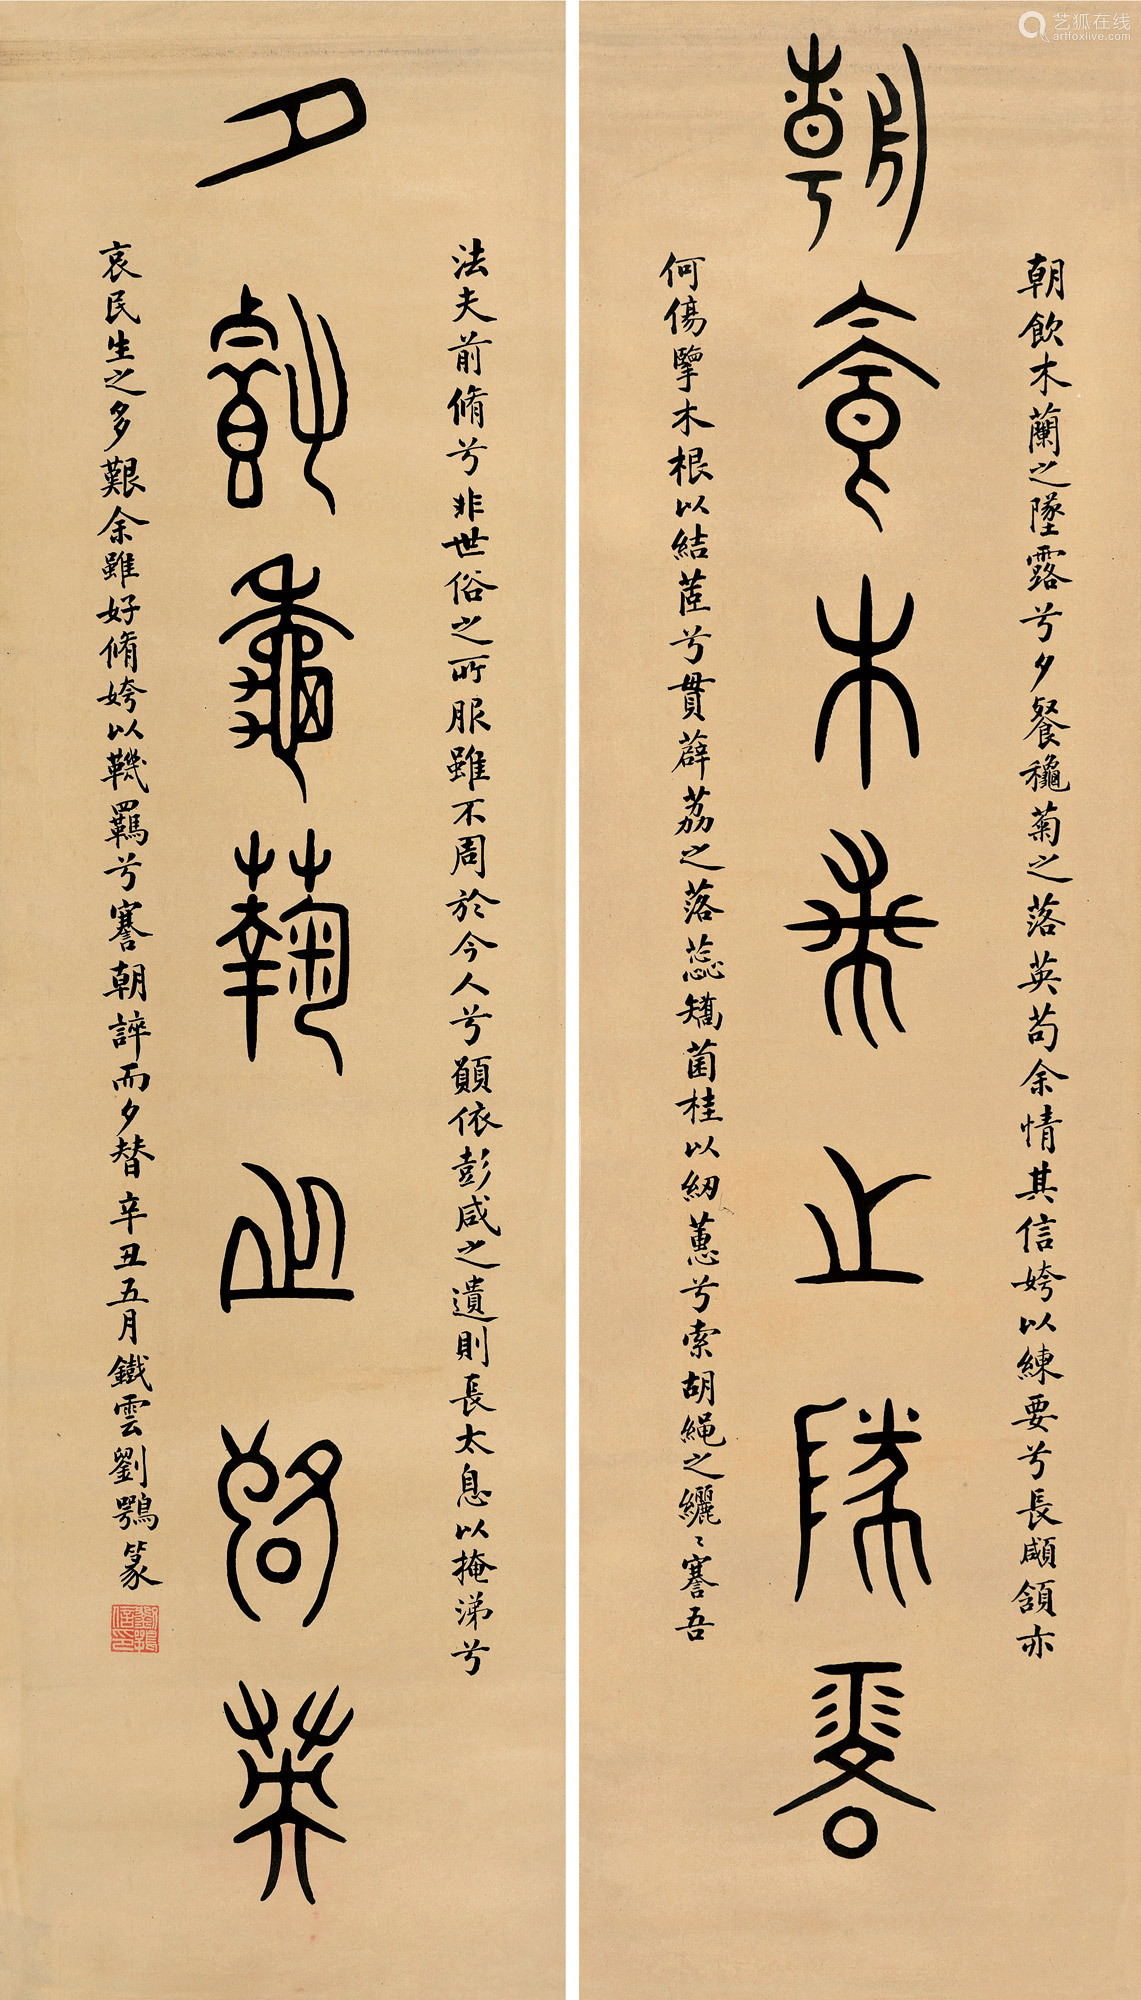 艺狐在线
artfoxlive.com
朝飲木蘭之墜露
朝飲木蘭之墜露兮夕餐龝菊之落英苟余情其信姱以練要兮長顑頷亦
何傷擥木根以結茝兮貫薜荔之落蕊矯菌桂以紉蕙兮索胡繩之纚〻謇吾
夕餐秋菊之落英
法夫前脩兮非世俗之所服雖不周於今人兮願依彭咸之遺則長太息以掩涕兮
哀民生之多艱余雖好脩姱以鞿羈兮謇朝誶而夕替辛丑五月鐵雲劉鶚篆
劉鶚信印